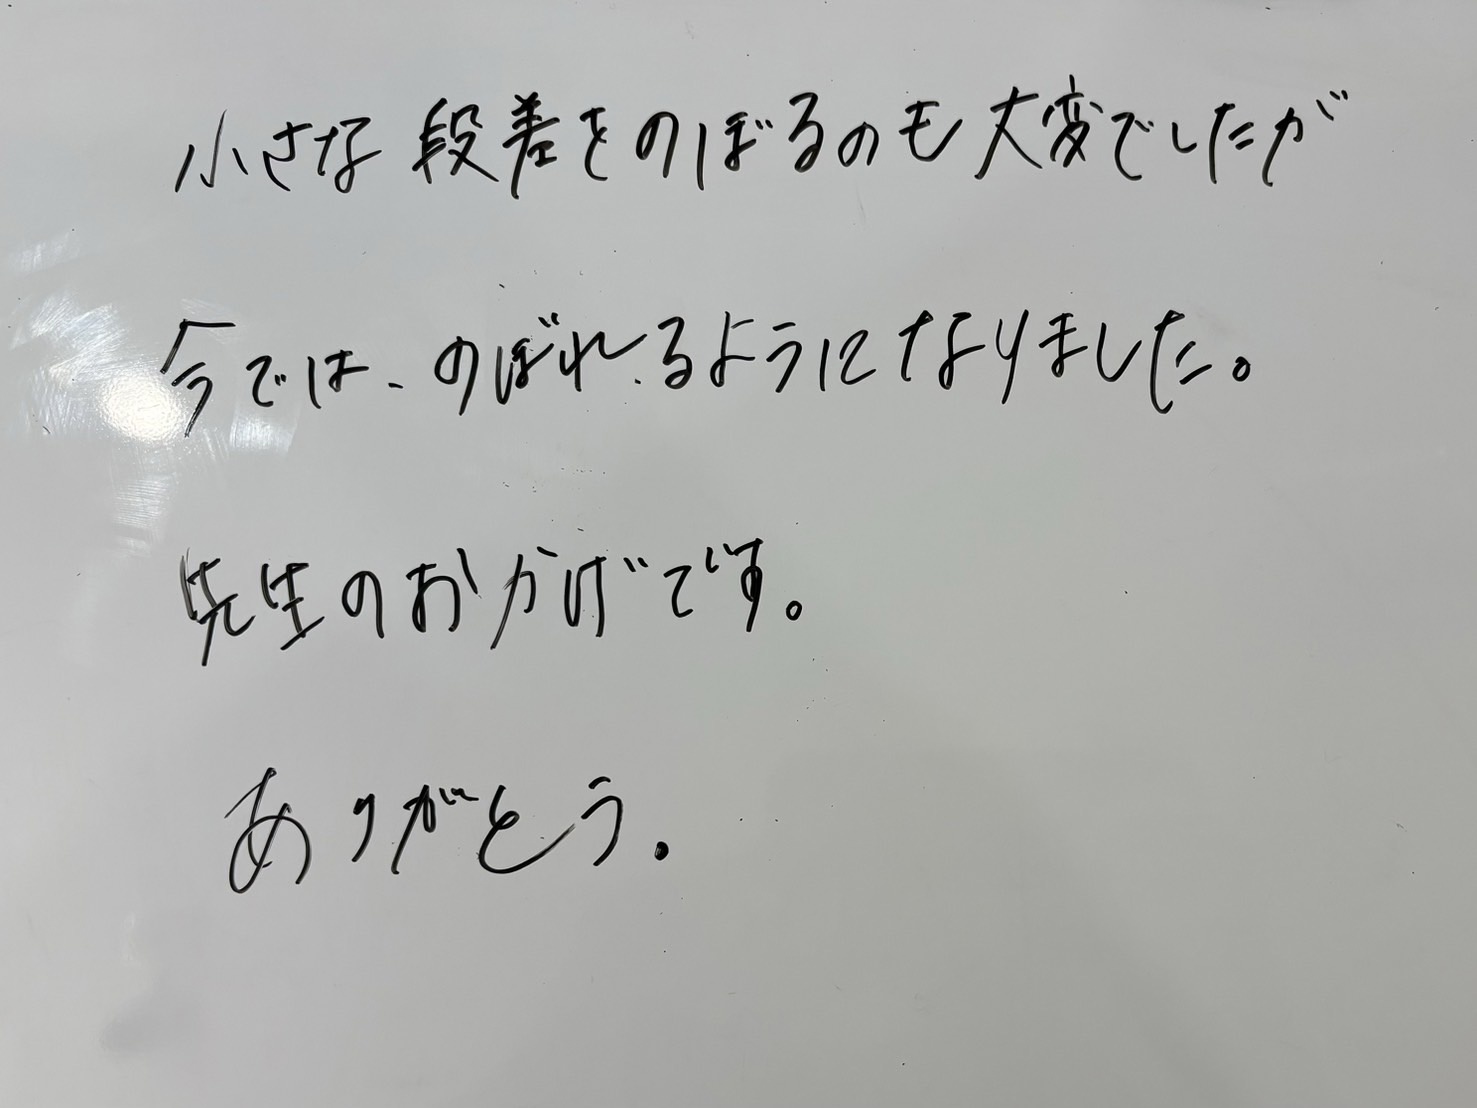 小さな段差をのぼるのも大変でしたが
今では、のぼれるようになりました。
先生のおかげです。
ありがとう.